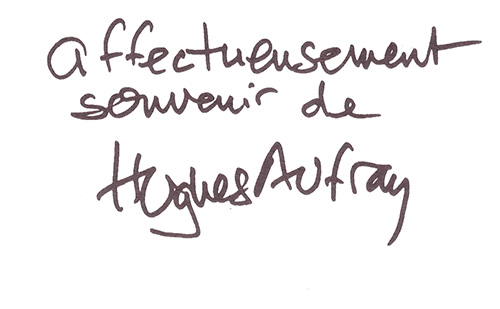 affectueusement
souvenir de
Hugues Aufray